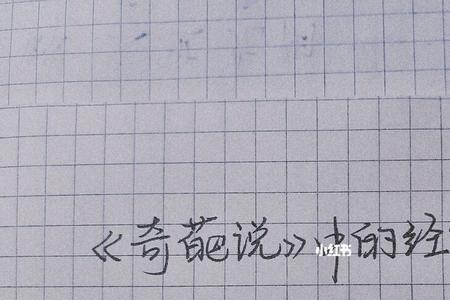 《奇葩说》中的经
小红书